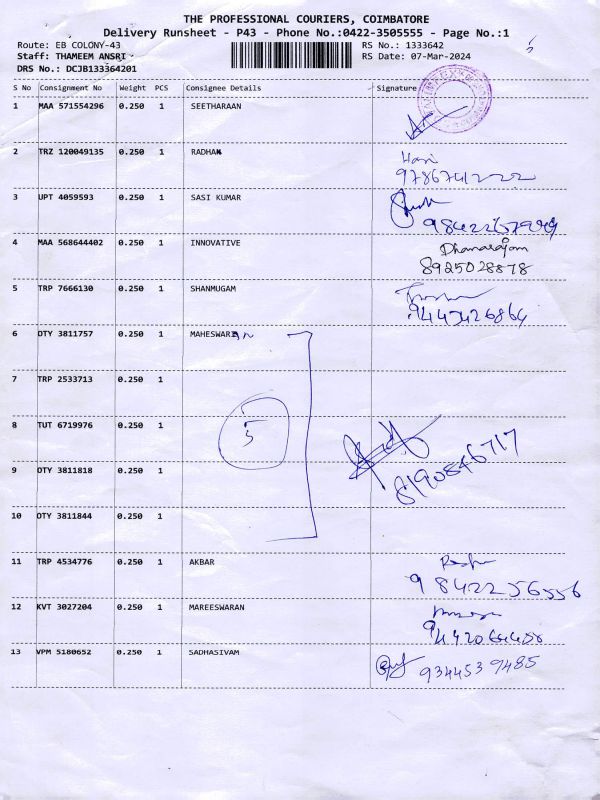 THE PROFESSIONAL COURIERS, COIMBATORE
Delivery Runsheet - P43 - Phone No.:0422-3505555 - Page No.:1
Route: EB COLONY-43 RS No.: 1333642
Staff: THAMEEM ANSRI RS Date: 07-Mar-2024
DRS No.: DCJB133364201
S No Consignment No Weight PCS Consignee Details Signature
1 MAA 571554296 0.250 1 SEETHARAAN
2 TRZ 120049135 0.250 1 RADHA
Hari
9786741222
3 UPT 4059593 0.250 1 SASI KUMAR
4 MAA 568644402 0.250 1 INNOVATIVE
Dhanarajam
8925028878
5 TRP 7666130 0.250 1 SHANMUGAM
9443426864
6 DTY 3811757 0.250 1 MAHESWARAN
7 TRP 2533713 0.250 1
8 TUT 6719976 0.250 1
5
8190846717
9 DTY 3811818 0.250 1
10 DTY 3811844 0.250 1
11 TRP 4534776 0.250 1 AKBAR
9842256556
12 KVT 3027204 0.250 1 MAREESWARAN
13 VPM 5180652 0.250 1 SADHASIVAM
9344539485